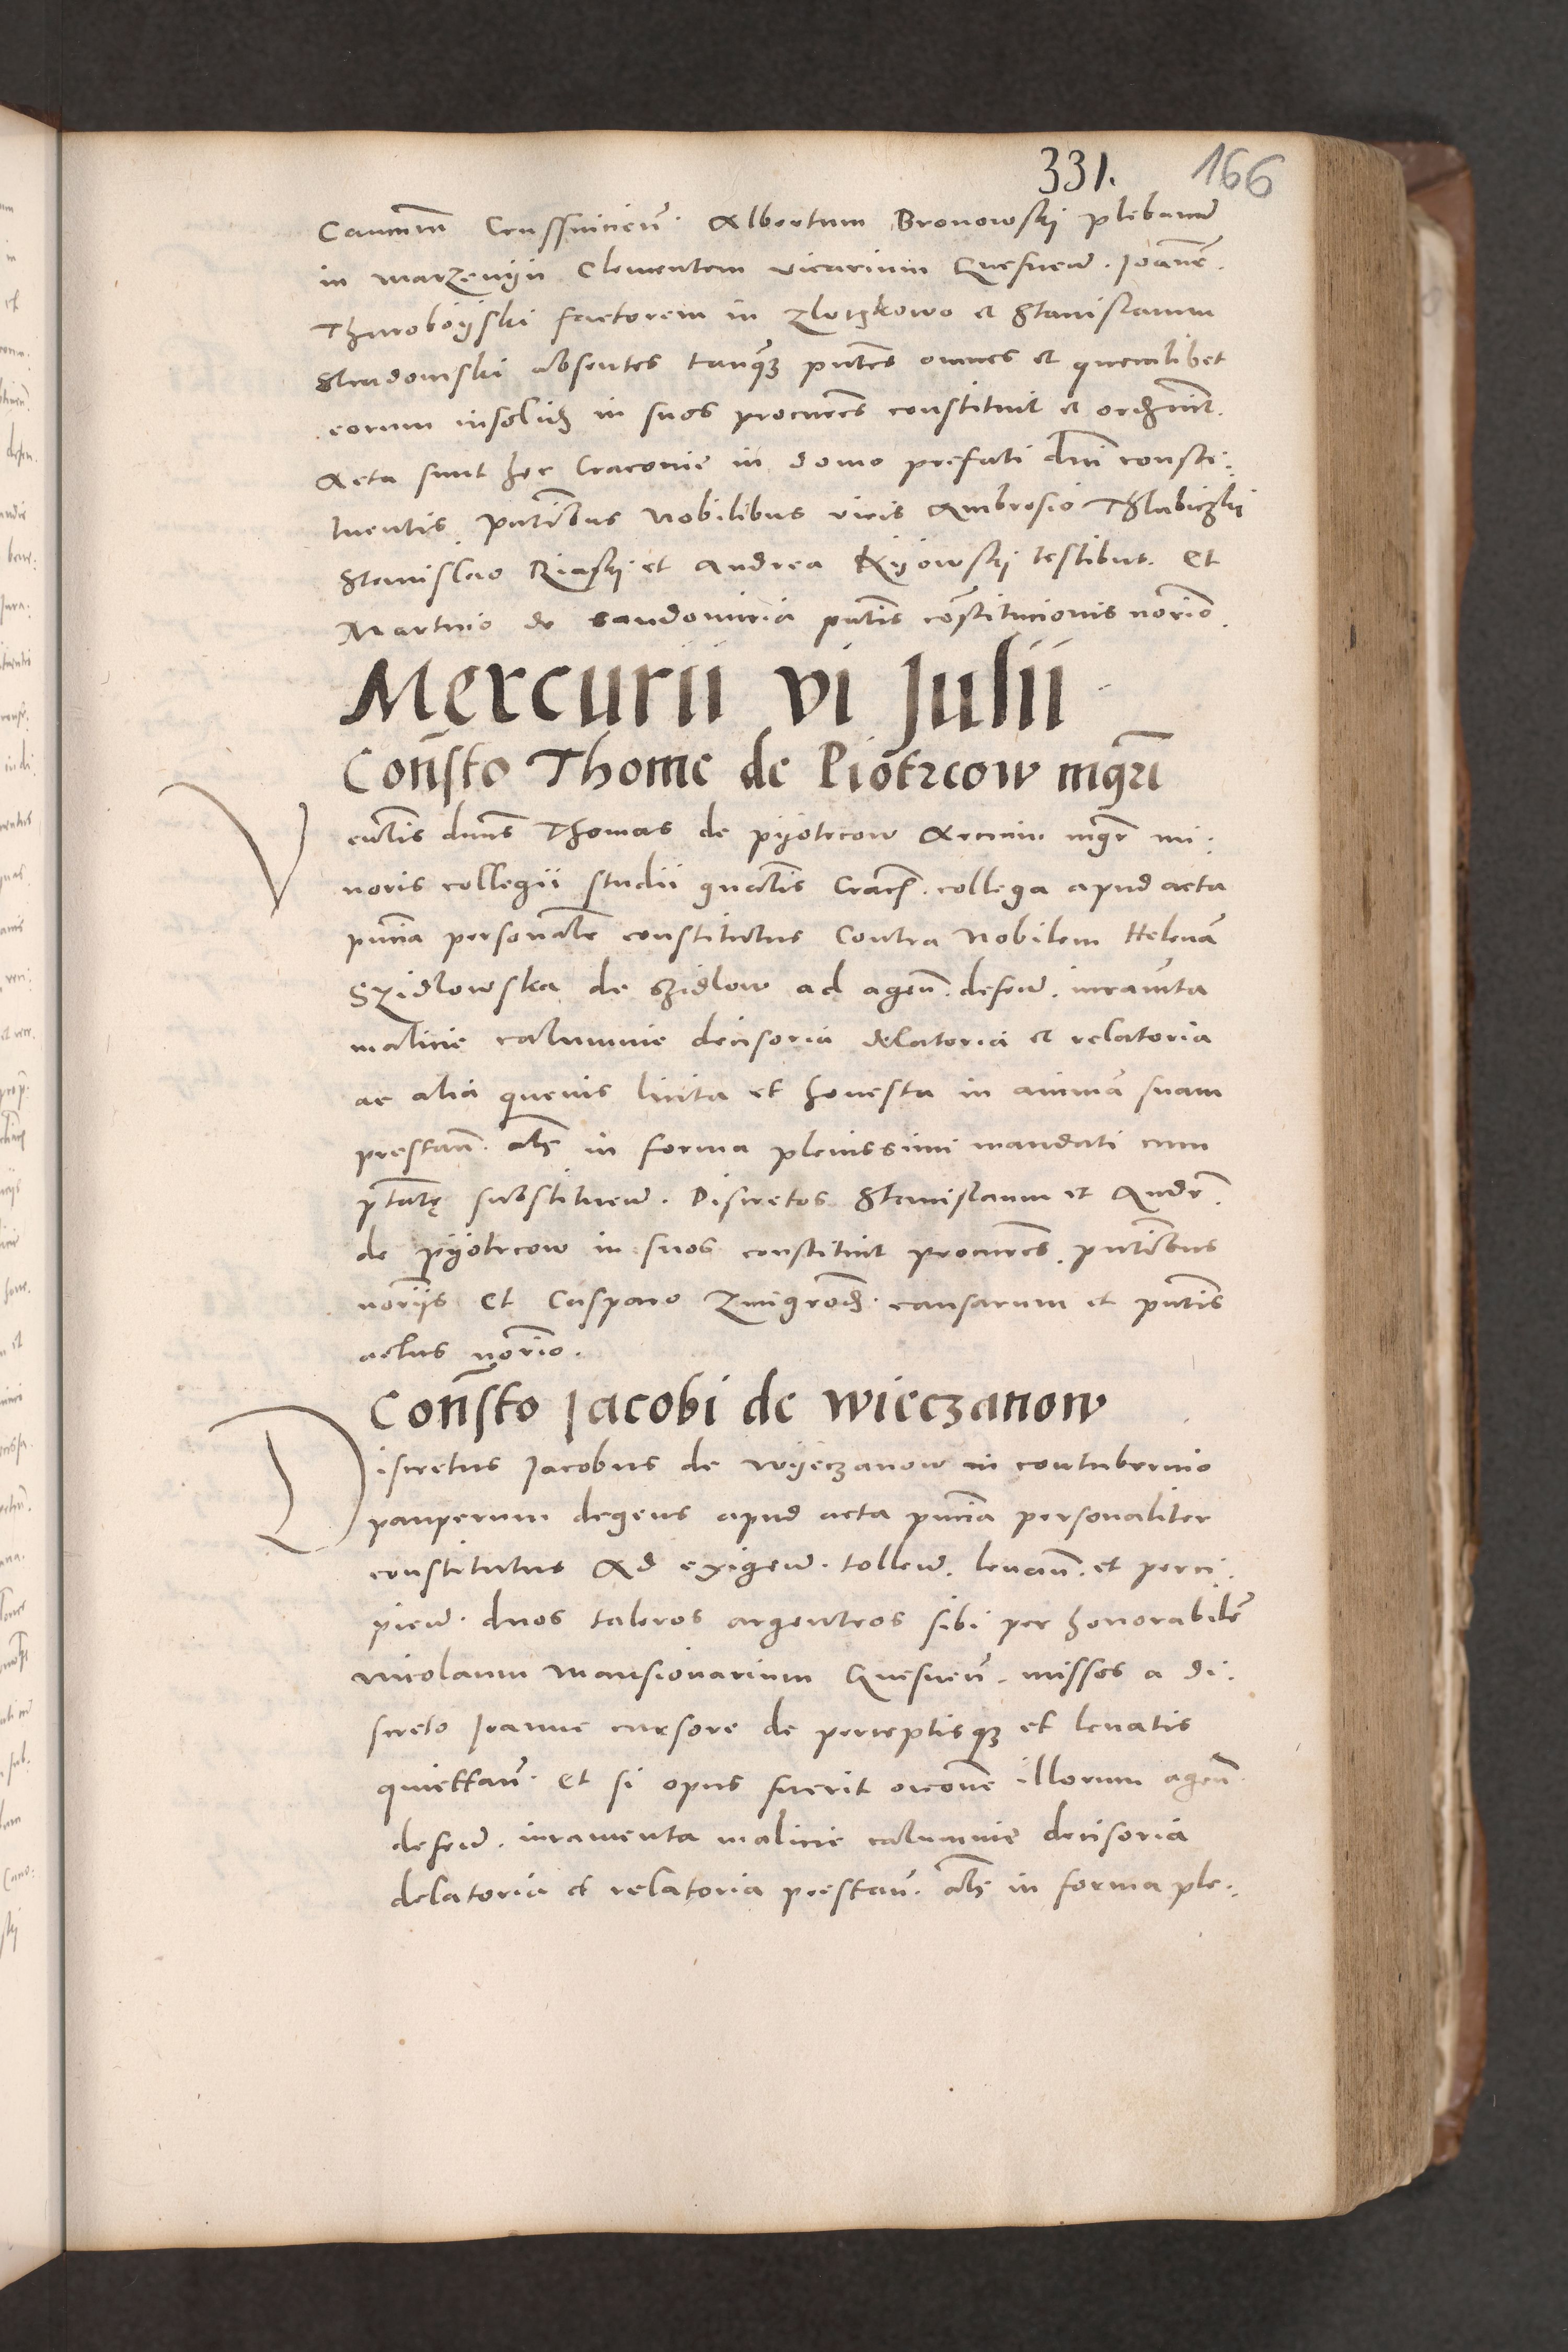 331. 166
Canonicum Crusfuicien̄. Albertum Bronowskij plebanū
in marzenijn Clementem vicarium Gnesneñ. Joannē.
Thuroboijski factorem in Zlotzkowo et Stanislaum
Sladowski absentes tanq̄ꝫ pñtes omnes et quemlibet
eorum insolidꝫ in suos procurēs constituit et ordīauit.
Acta sunt hec Cracovie in domo prefati dñi consti:
tuentis pñtibus Nobilibus viris Ambrosio
Stanislao Riaskij et Andrea Kijowskij testibus. Et
Martino de Sandomiria pñtis coñstitucionis noriō.
Mercurii vi Julii
Con̄sto Thome de Piotrcow mgr̄i
Venlis dnus Thomas de pijotrcow Arcium mgr̄ mi:
noris collegii studii gnalis Cracꝭ. collega apud acta
pñcia personalr̄ constitutus Contra Nobilem Helenā
Szidlowska de szidlow ad agen̄. defeñ. iuramēta
malicie calumnie decisoria delatoria et relatoria
ac alia quevis licita et honesta in animā suam
prestan̄. als in forma plenissimi mandati cum
p̄tate substituen̄. Discretos Stanislaum et Andr̄.
de pijotrcow in suos constituit procurēs. pñtibus
norijs et Casparo Zmigrodꝫ. causarum et pñtis
actus noriō.
Con̄sto Jacobi de wieczanow
Discretus Jacobus de wijeczanow in contubernio
pauperum degens apud acta pñcia personaliter
constitutus Ad exigen̄. tollen̄. levan̄. et perci:
pien̄. duos taleros argenteos sibi per honorabilē
Nicolaum Mansionarium Gnesnen̄. missos a di:
screto Joanne cursore de perceptisqꝫ et levatis
quiettan̄. Et si opus fuerit occoñe illorum agen̄.
defeñ. iuramenta malicie calumnie decisoria
delatoria et relatoria prestan̄. als in forma ple: